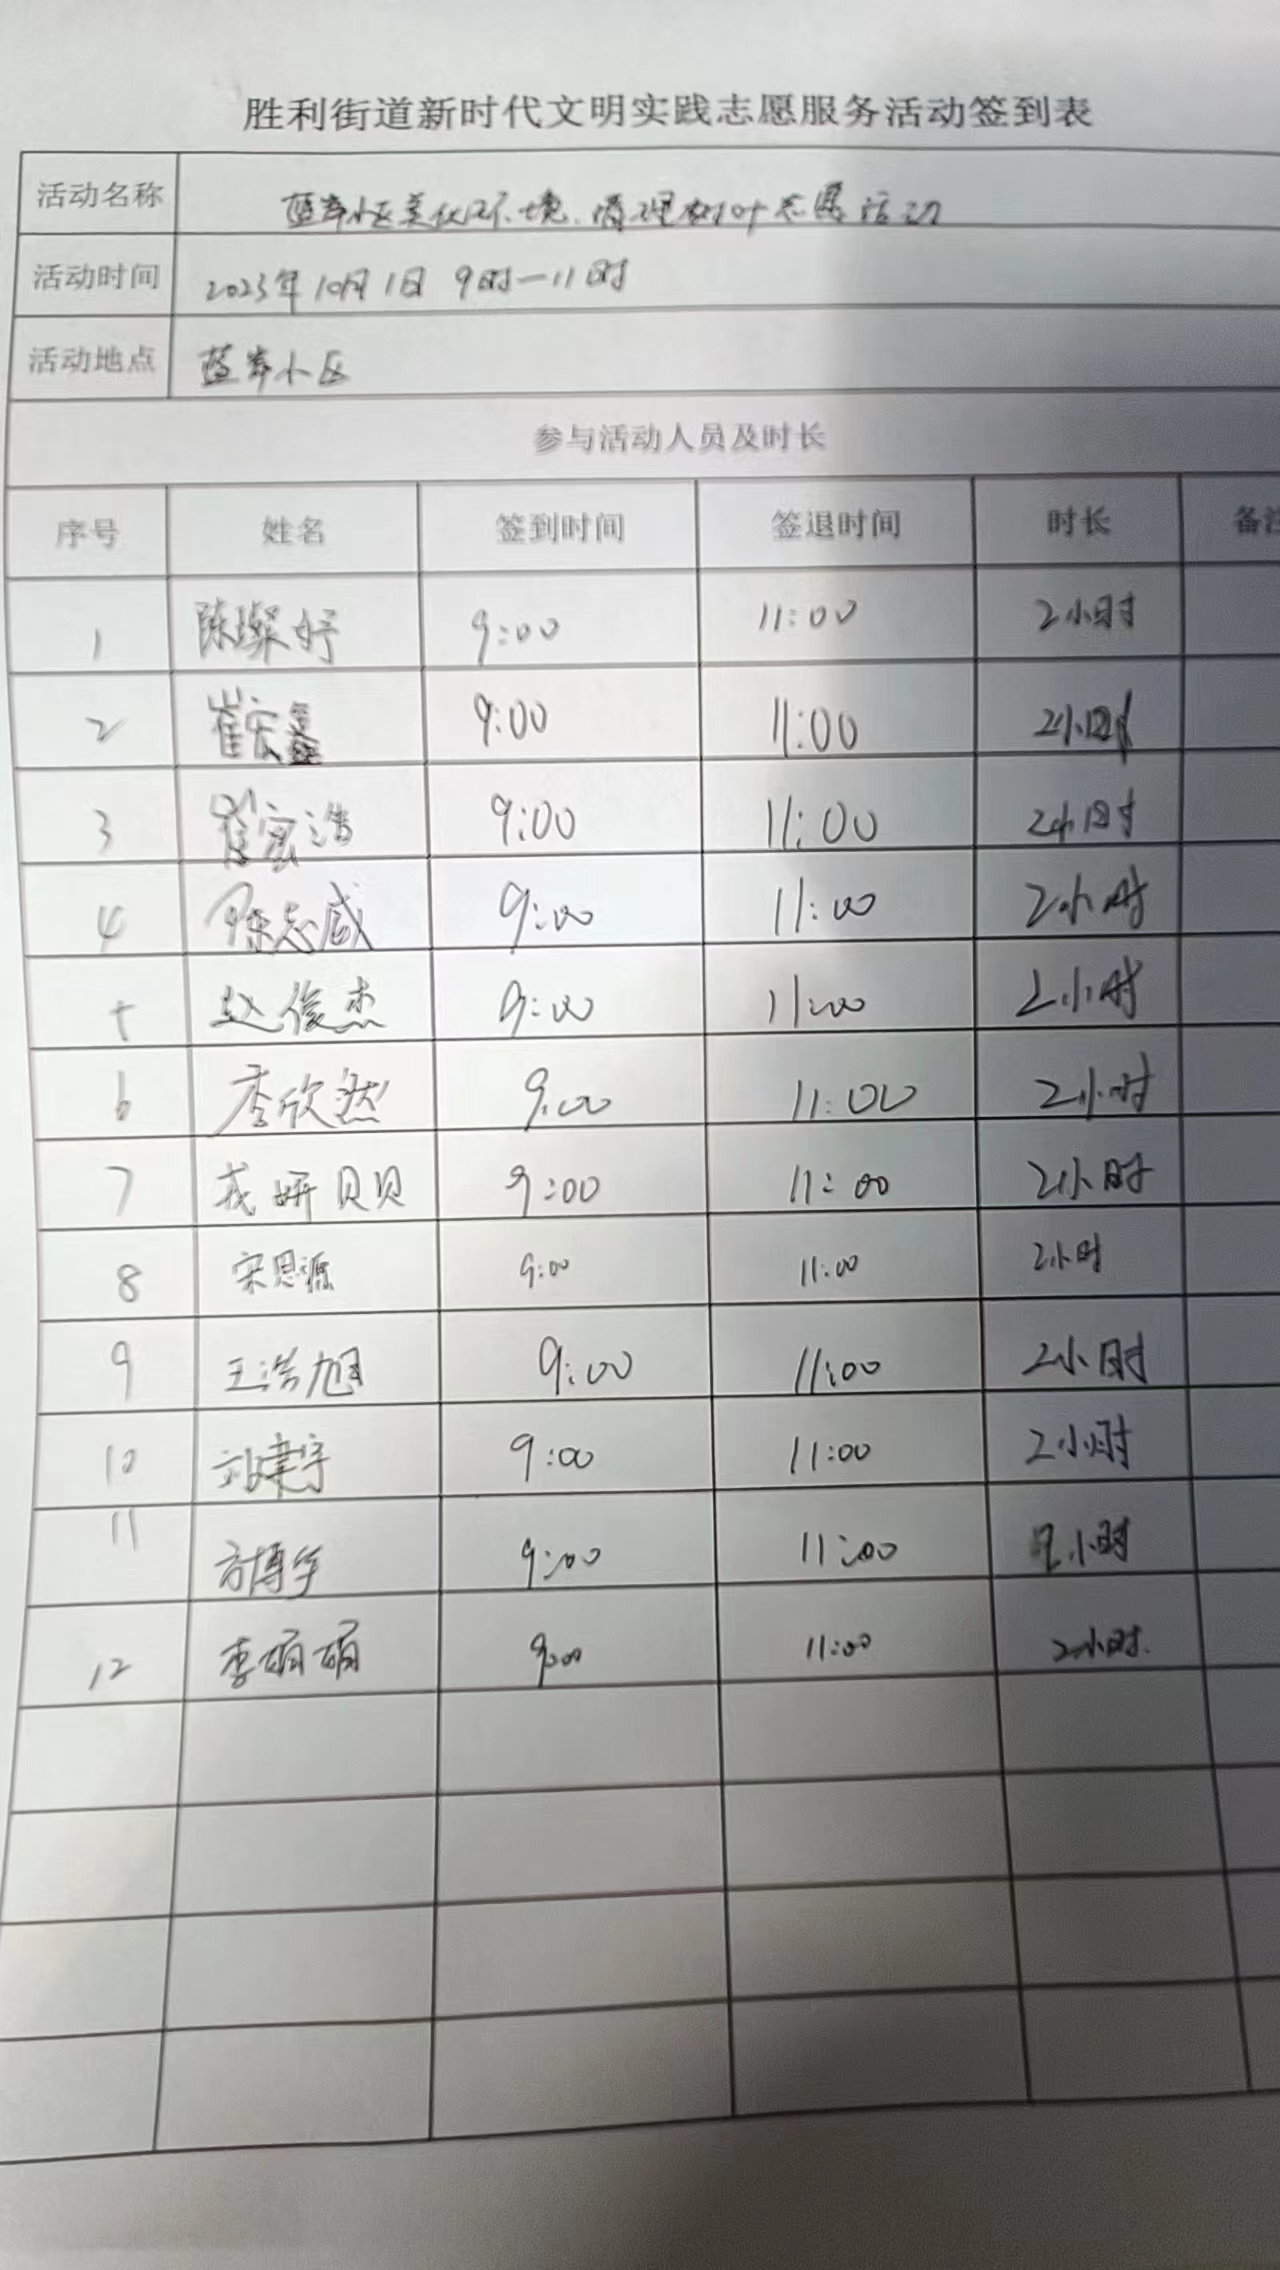 胜利街道新时代文明实践志愿服务活动签到表
活动名称 蓝岸小区美化环境、清理树叶志愿活动
活动时间 2023年10月1日 9时—11时
活动地点 蓝岸小区
参与活动人员及时长
序号 姓名 签到时间 签退时间 时长 备注
1 陈璨妤 9:00 11:00 2小时
2 崔宏鑫 9:00 11:00 2小时
3 崔寓浩 9:00 11:00 2小时
4 徐志威 9:00 11:00 2小时
5 赵俊杰 9:00 11:00 2小时
6 李欣然 9:00 11:00 2小时
7 戎妍贝贝 9:00 11:00 2小时
8 宋思源 9:00 11:00 2小时
9 王浩旭 9:00 11:00 2小时
10 刘建宇 9:00 11:00 2小时
11 方博华 9:00 11:00 2小时
12 李萌萌 9:00 11:00 2小时.